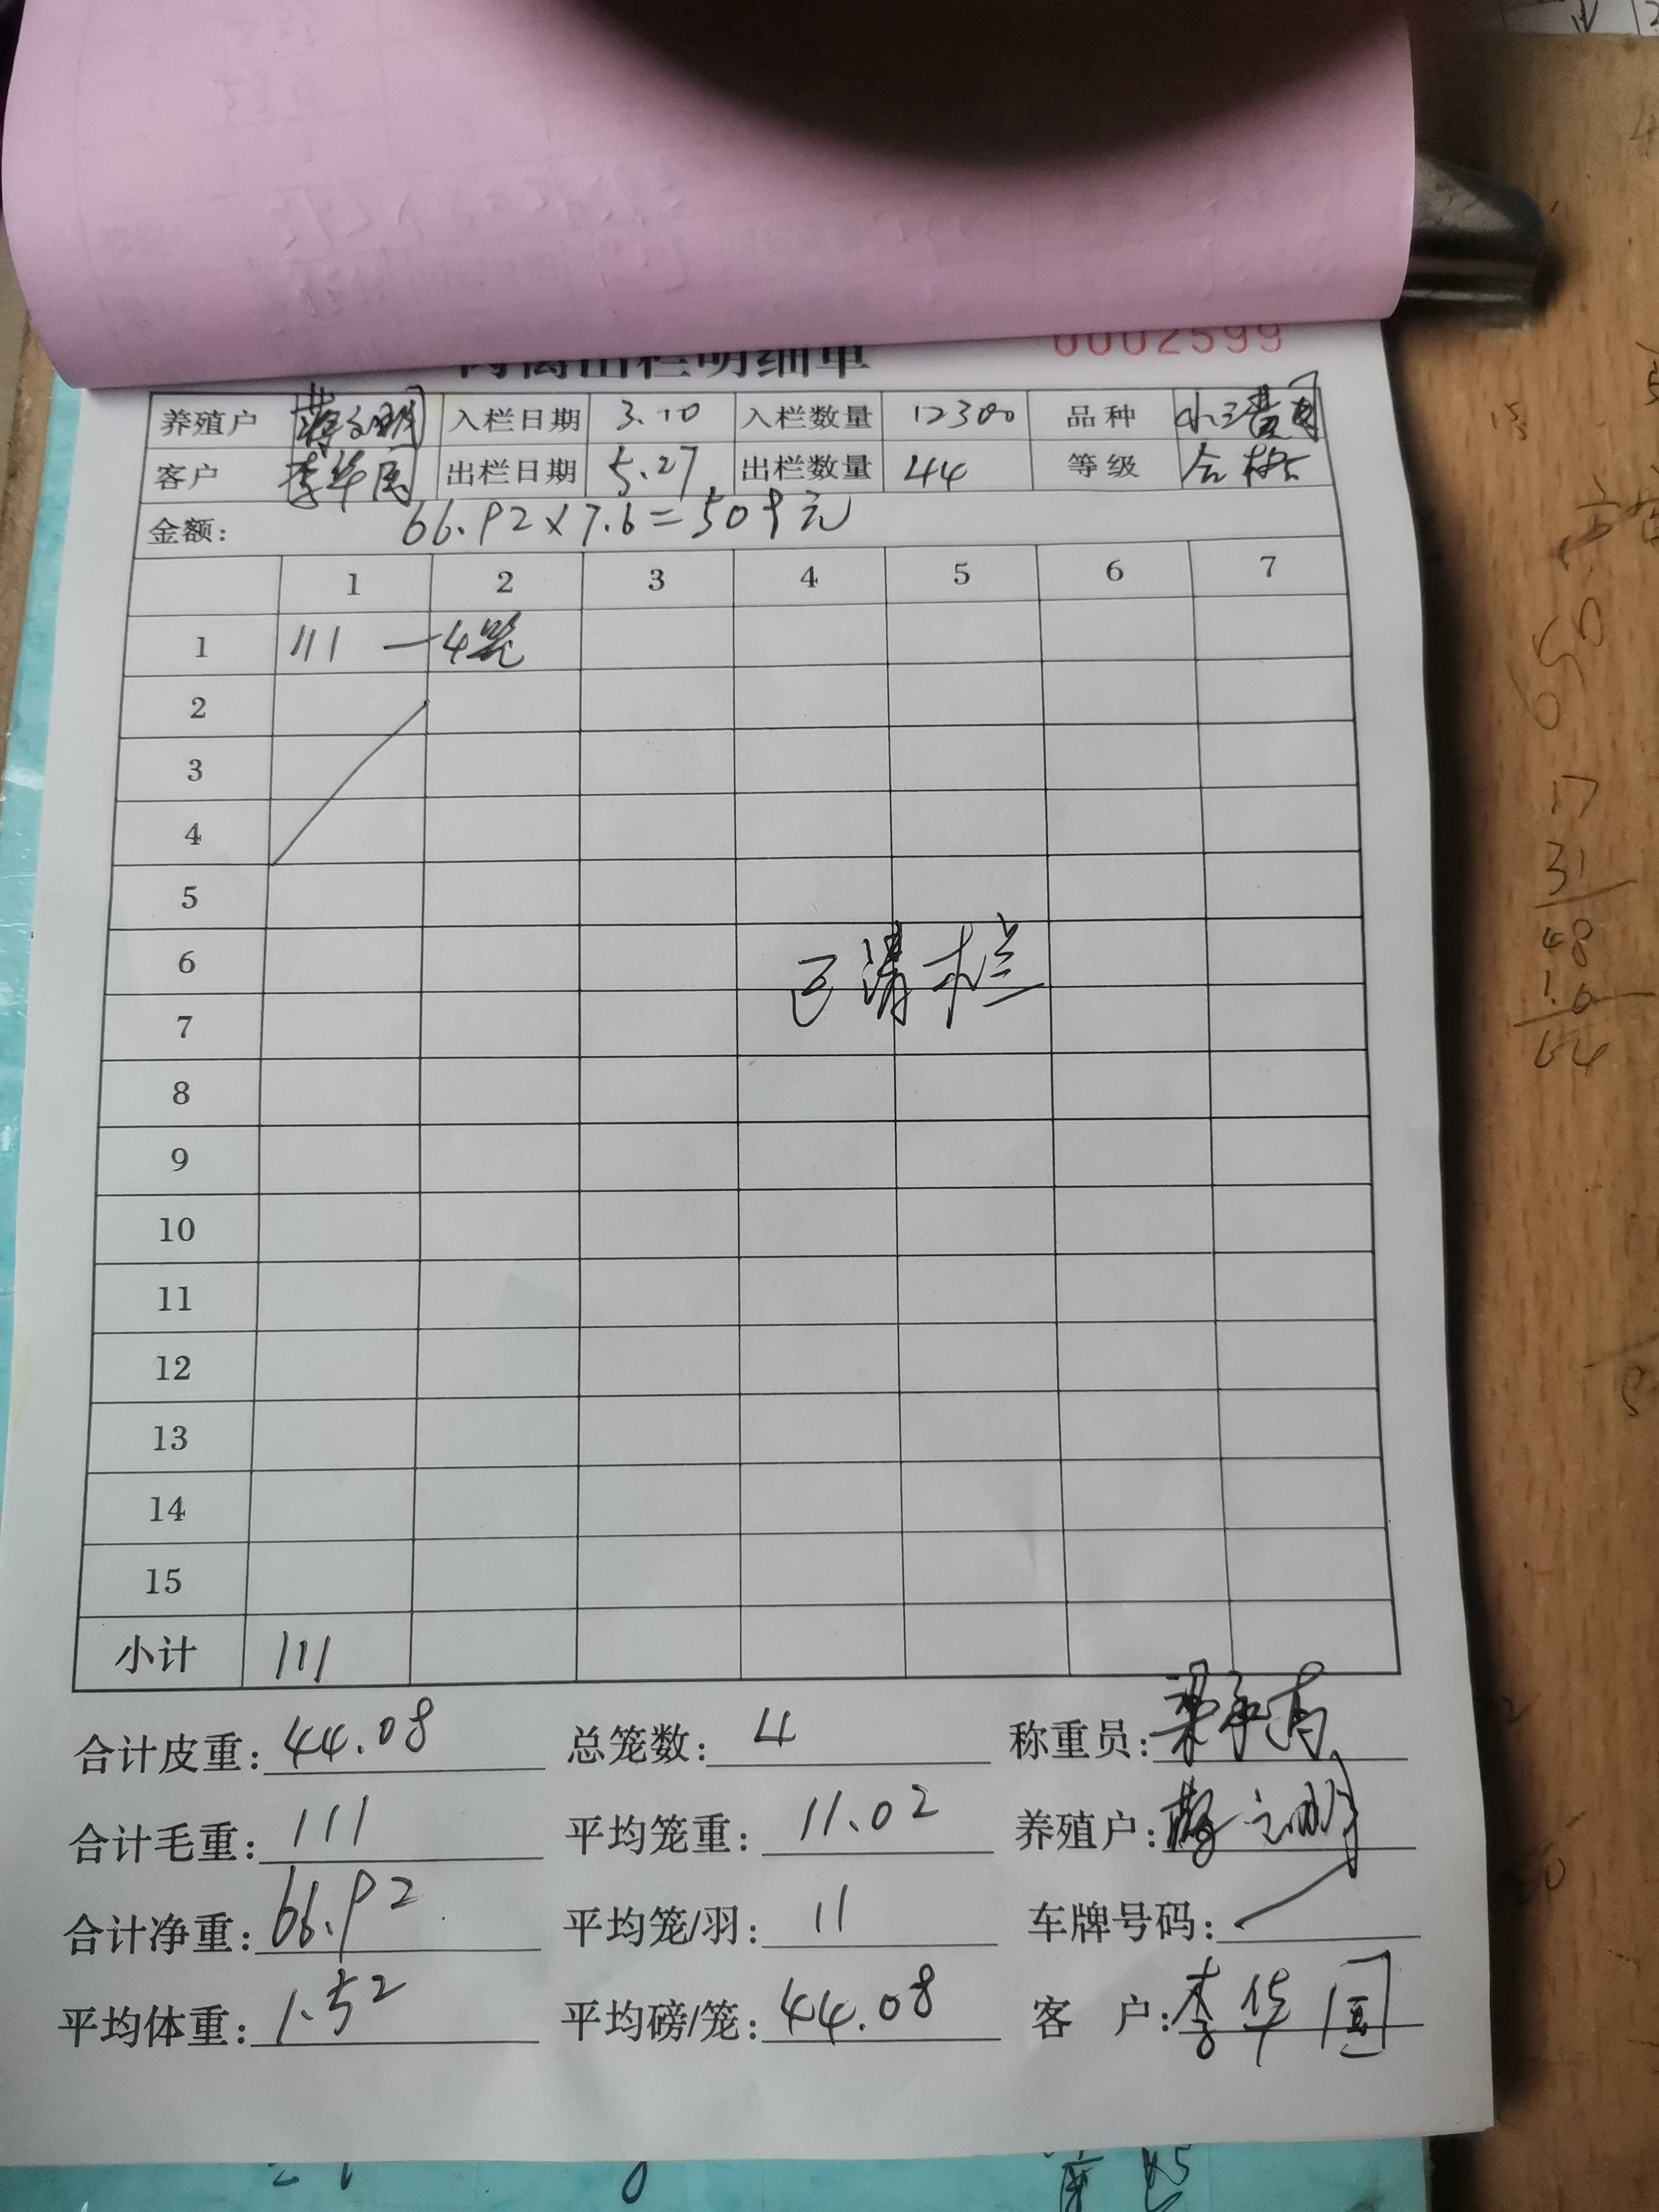 肉禽出栏明细单 0002599
养殖户 入栏日期 3.10 入栏数量 12300 品种
客户 李华国 出栏日期 5.27 出栏数量 44 等级 合格
金额: 66.92×7.6=509元
1 2 3 4 5 6 7
1 111 一4笼
2
3
4
5
6 已清栏
7
8
9
10
11
12
13
14
15
小计 111
合计皮重: 44.08 总笼数: 4 称重员:
合计毛重: 111 平均笼重: 11.02 养殖户:
合计净重: 66.92 平均笼/羽: 11 车牌号码:
平均体重: 1.52 平均磅/笼: 44.08 客 户: 李华国
650
17
31
48
1.6
64